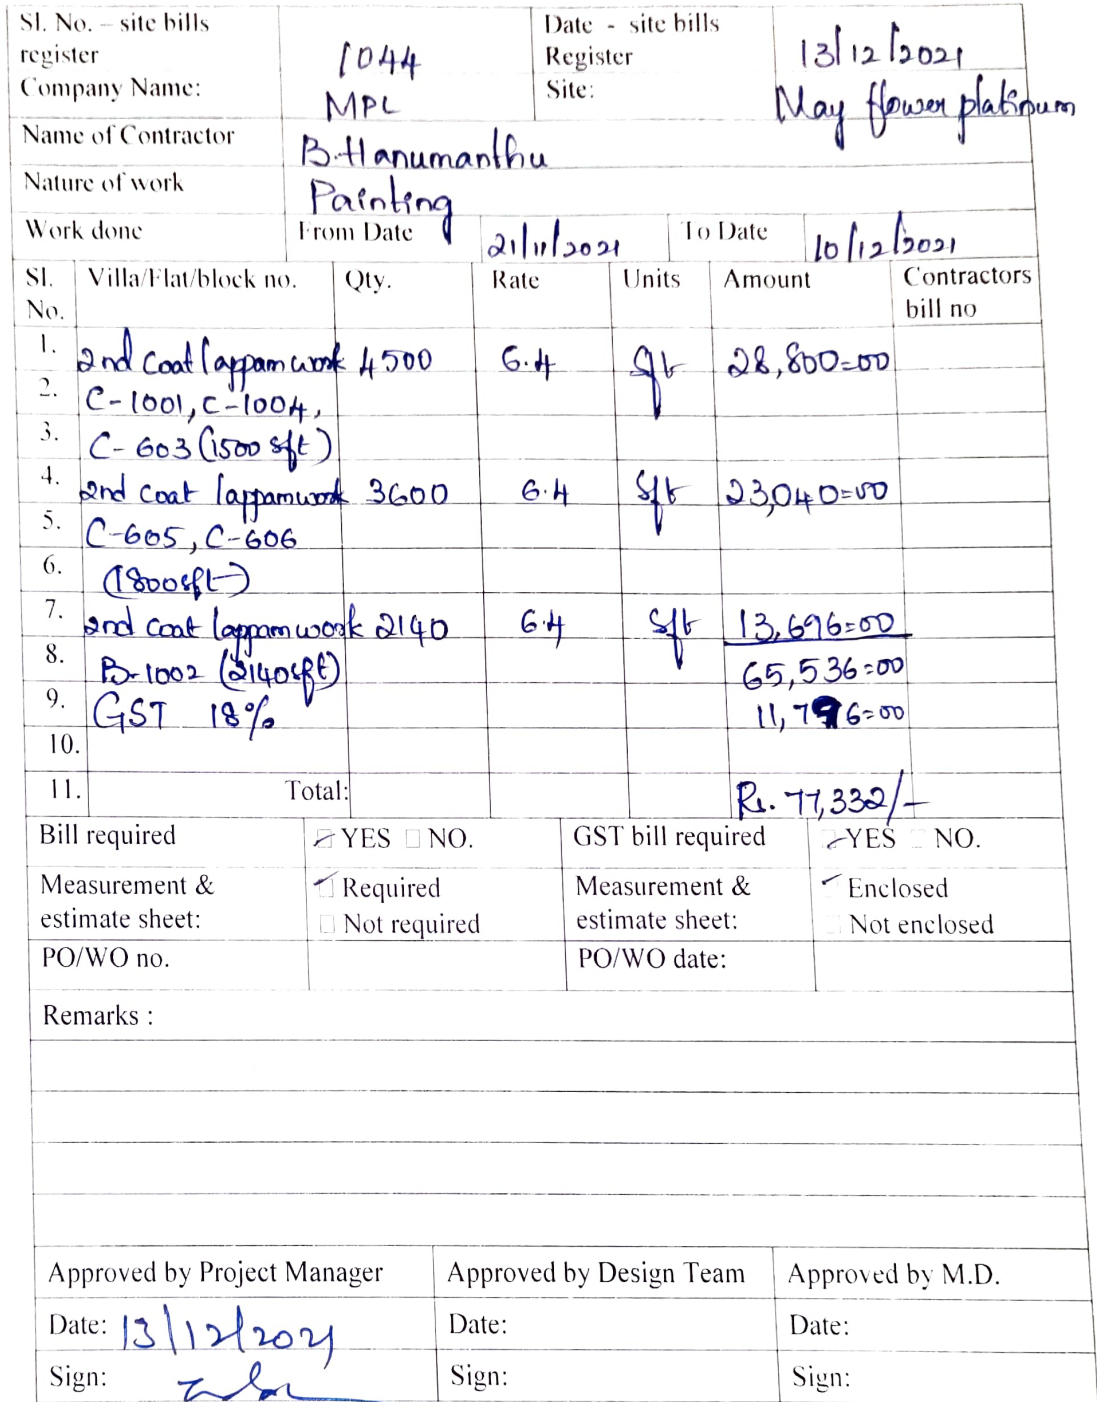 Sl. No. – site bills register 1044 Date - site bills Register 13/12/2021
Company Name: MPL Site: May flower platinum
Name of Contractor B.Hanumanthu
Nature of work Painting
Work done From Date 21/11/2021 To Date 10/12/2021
Sl. No. Villa/Flat/block no. Qty. Rate Units Amount Contractors bill no
1. 2nd coat lappam work 4500 6.4 sft 28,800=00
2. C-1001, C-1004,
3. C-603 (1500 sft)
4. 2nd coat lappam work 3600 6.4 sft 23,040=00
5. C-605, C-606
6. (1800sft)
7. 2nd coat lappam work 2140 6.4 sft 13,696=00
8. B-1002 (2140sft) 65,536=00
9. GST 18% 11,796=00
10.
11. Total: Rs. 77,332/-
Bill required YES NO. GST bill required YES NO.
Measurement & estimate sheet: Required Measurement & estimate sheet: Enclosed
Not required Not enclosed
PO/WO no. PO/WO date:
Remarks :
Approved by Project Manager Approved by Design Team Approved by M.D.
Date: 13/12/2021 Date: Date:
Sign: Sign: Sign: